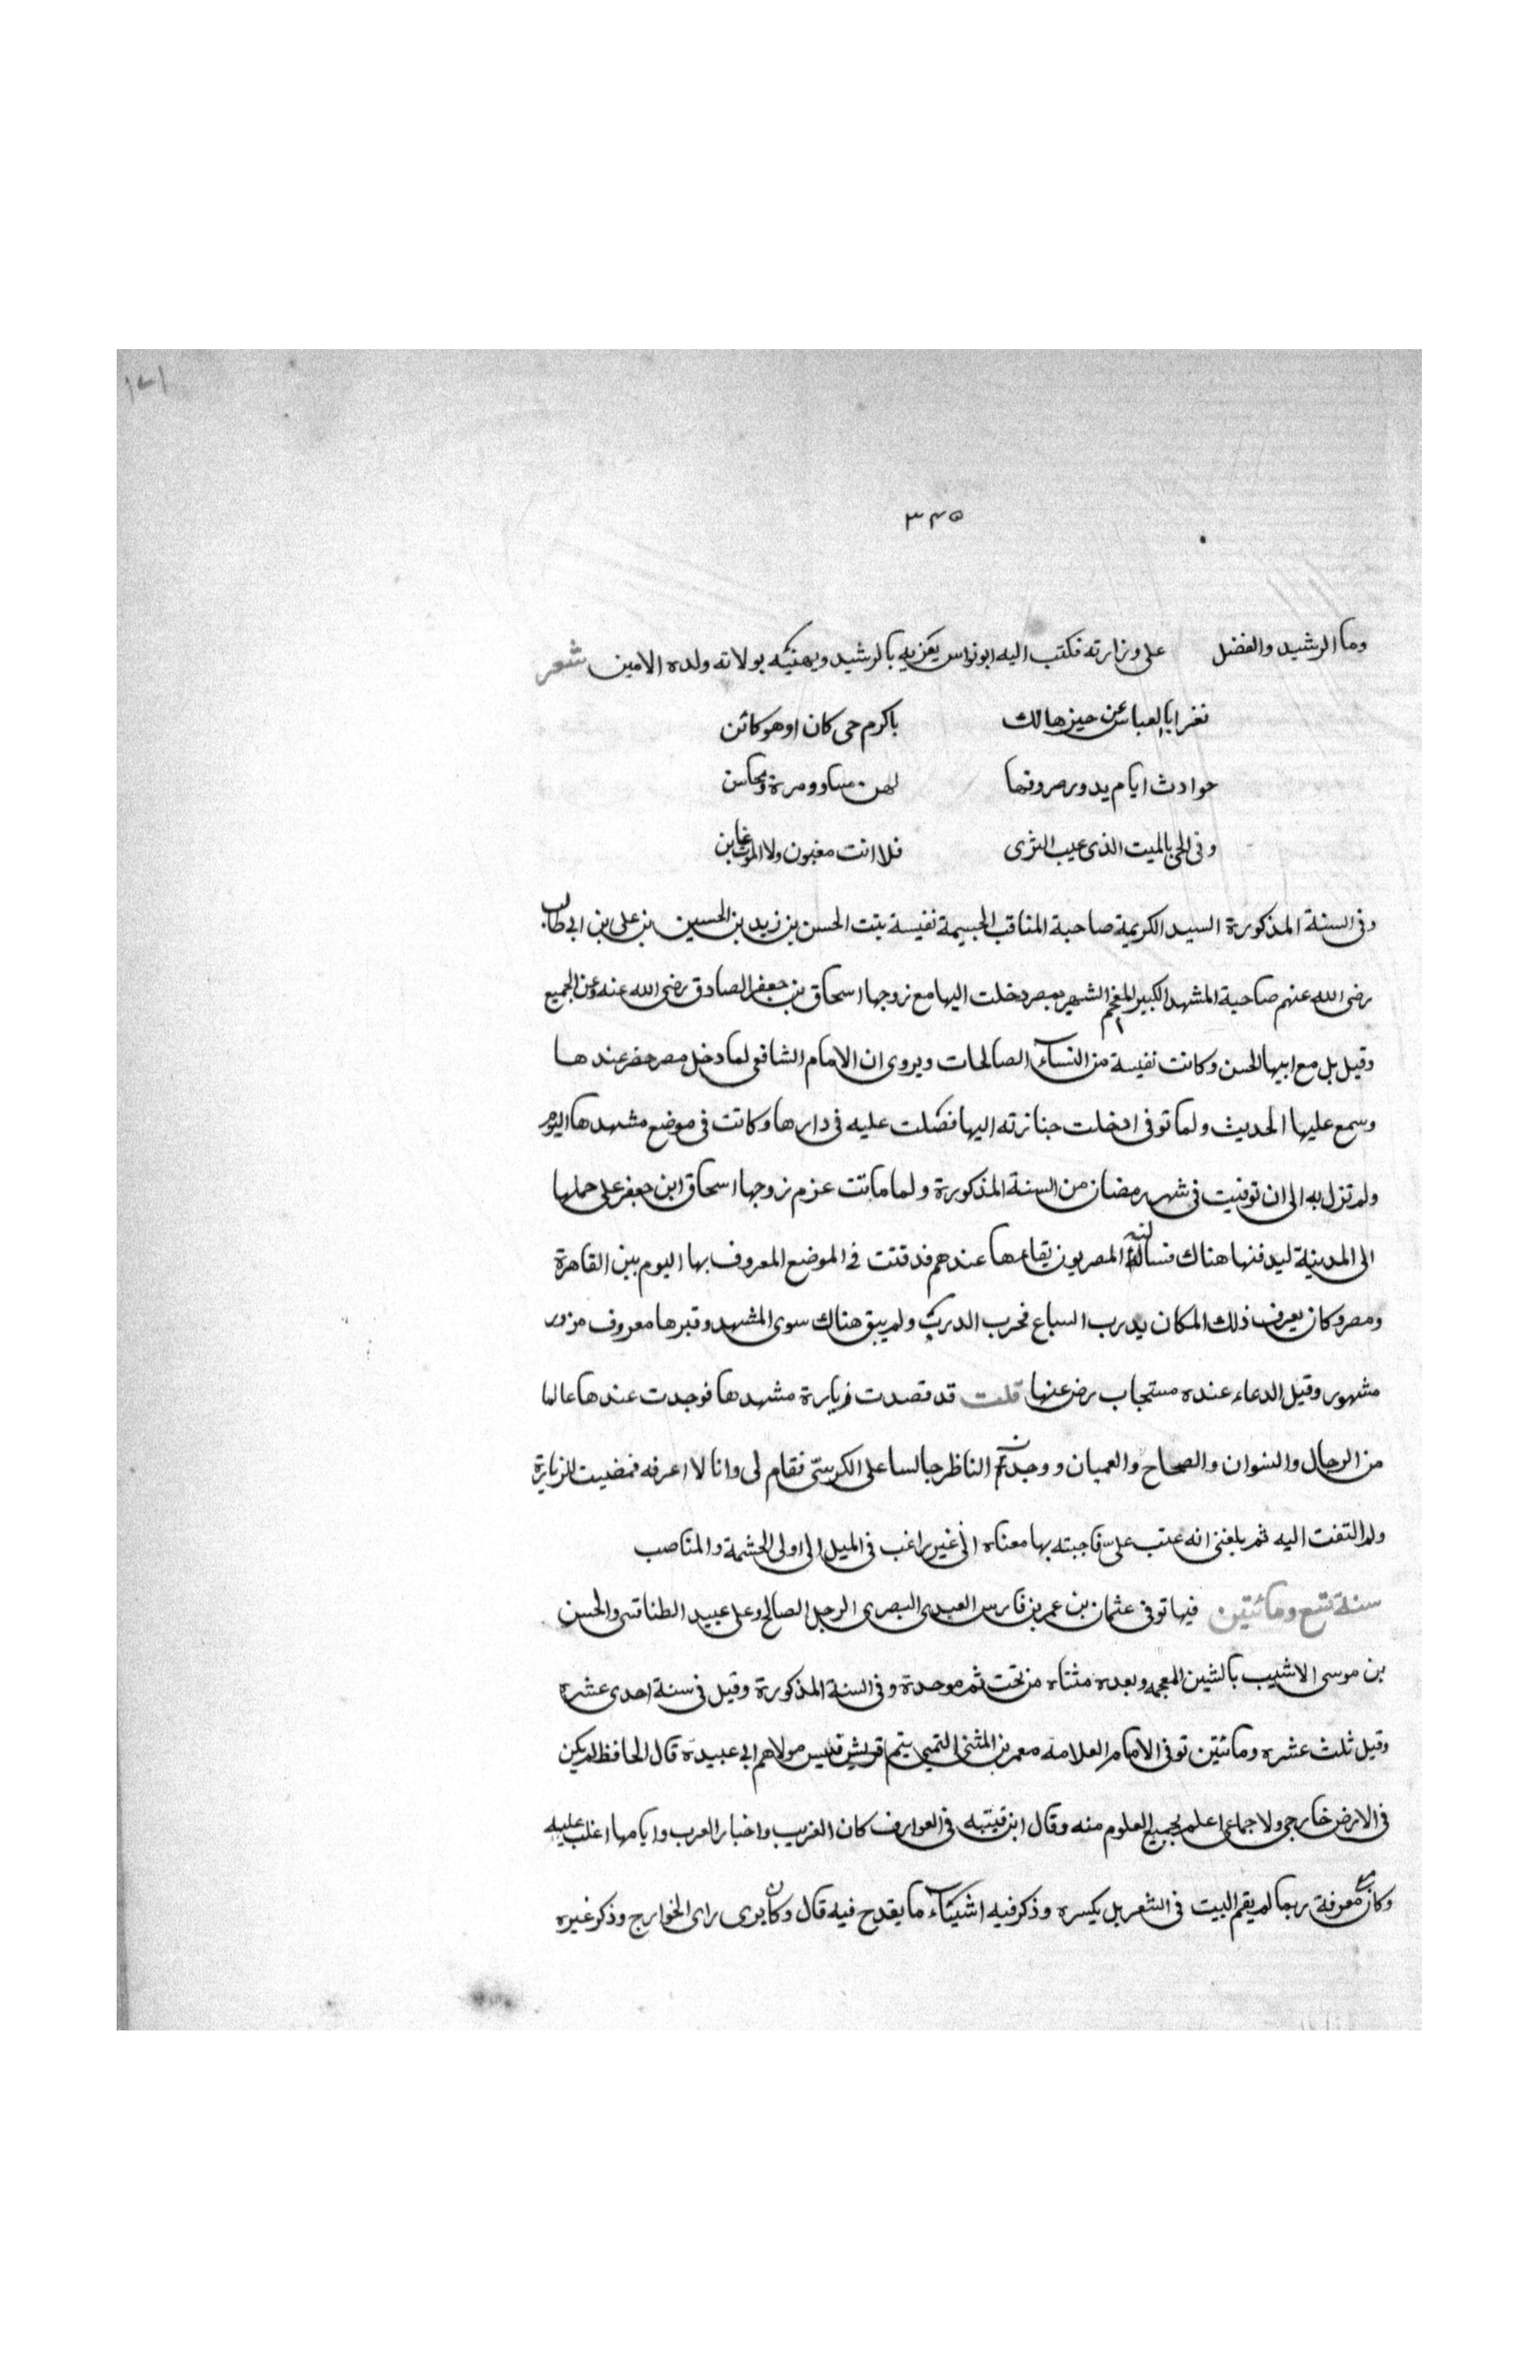 ١٧١
٣٤٥
وما الرشيد والفضل على وزارته فكتب اليه ابو نواس يعزيه بالرشيد ويهنيكه بولاته ولده الامين شعر
تغز ابا العباس عن حيز هالك باكرم حى كان او هو كائن
حوادث ايام يدور صروفها لهن مساو ومرة ومحاسن
وفى الحى بالميت الذى عيب الثرى فلا انت مغبون ولا الموت غابن
وفى السنة المذكورة السيد الكريمة صاحبة المناقب الجسيمة نفيسة بنت الحسن بن زيد بن الحسين بن على بن ابى طالب
رضى الله عنهم صاحبة المشهد الكبير المفخم الشهير بمصر دخلت اليها مع زوجها اسحاق بن جعفر الصادق رضى الله عنه وعن الجميع
وقيل بل مع ابيها الحسن وكانت نفيسة من النساء الصالحات ويروى ان الامام الشافعى لما دخل مصر حضر عندها
وسمع عليها الحديث ولما توفى ادخلت جنازته اليها فصلت عليه فى دارها وكانت فى موضع مشهدها اليوم
ولم تزل به الى ان توفيت فى شهر رمضان من السنة المذكورة ولما ماتت عزم زوجها اسحاق ابن جعفر على حملها
الى المدينة ليدفنها هناك فساله المصريون بقاءها عندهم فدفنت فى الموضع المعروف بها اليوم بين القاهرة
ومصر وكان يعرف ذلك المكان بدرب السباع فخرب الدرب ولم يبق هناك سوى المشهد وقبرها معروف مزور
مشهور وقيل الدعاء عنده مستجاب رضى عنها قلت قد قصدت زيارة مشهدها فوجدت عندها عالما
من الرجال والنسوان والصحاح والعميان ووجدت الناظر جالسا على الكرسى فقام لى وانا لا اعرفه فمضيت للزيارة
ولم التفت اليه ثم بلغنى انه عتب على فاجبته بها معناه انى غير راغب فى الميل الى اولى الحشمة والمناصب
سنة تسع ومائتين فيها توفى عثمان بن عمر بن فارس العبدى البصرى الرجل الصالح وعلى عبيد الطنافسى والحسن
بن موسى الاشيب بالشين المعجمه وبعده مثناه من تحت ثم موحدة وفى السنة المذكورة وقيل فى سنة احدى عشره
وقيل ثلث عشره ومائتين توفى الامام العلامه معمر بن المثنى التميمى يتيم قريش قيس مولاهم ابى عبيده قال الحافظ لم يكن
فى الارض خارجى ولا جماعى اعلم بجميع العلوم منه وقال ابن قيتبه فى العوارف كان الغريب واخبار العرب وايامها اغلب عليه
وكان مع معرفة ربما لم يقم البيت فى الشعر بل يكسره وذكر فيه اشيئاء ما يقدح فيه قال وكان يرى راى الخوارج وذكر غيره